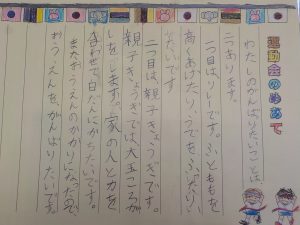 運動会のめあて
わたしのがんばりたいことは
二つあります。
一つ目はリレーです。ふとももを
高くあげたり、うでをふったり
したいです。
二つ目は、親子きょうぎです。
親子きょうぎでは大玉ころが
しをします。家の人と力を
合わせて、白だんにかちたいです。
またおうえんのかかりになったので、
おうえんを、がんばりたいです。